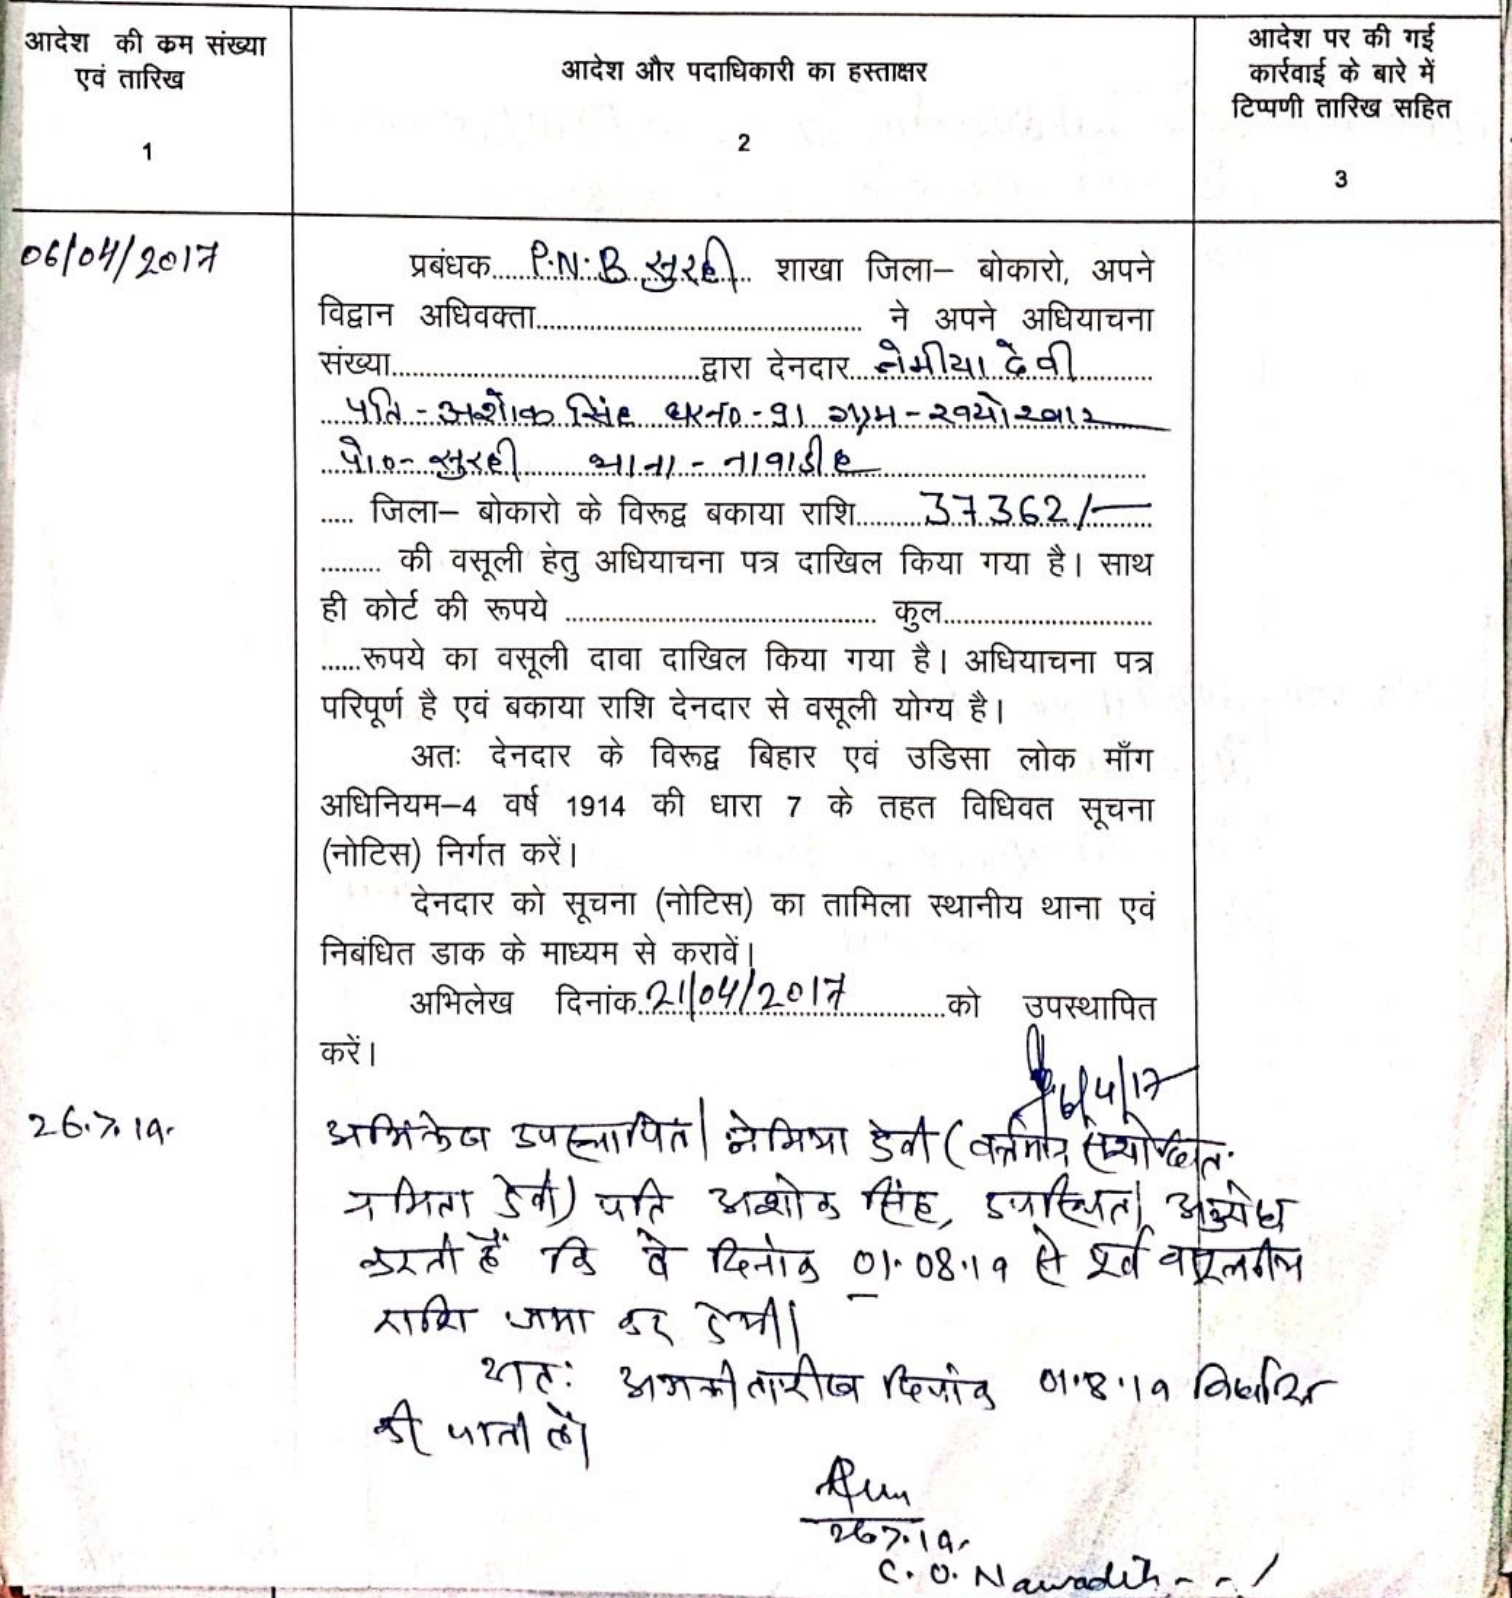 आदेश की कम संख्या
एवं तारिख
1
आदेश और पदाधिकारी का हस्ताक्षर
2
आदेश पर की गई
कार्रवाई के बारे में
टिप्पणी तारिख सहित
3
06/04/2017
प्रबंधक P.N.B सुरही शाखा जिला– बोकारो, अपने
विद्वान अधिवक्ता.......... ने अपने अधियाचना
संख्या.......... द्वारा देनदार नेमीया देवी
पति - अशोक सिंह घर न० - 91 ग्राम -
पो० - सुरही थाना - नावाडीह
..... जिला– बोकारो के विरूद्व बकाया राशि 37362/-
......... की वसूली हेतु अधियाचना पत्र दाखिल किया गया है। साथ
ही कोर्ट की रूपये .......... कुल..........
......रूपये का वसूली दावा दाखिल किया गया है। अधियाचना पत्र
परिपूर्ण है एवं बकाया राशि देनदार से वसूली योग्य है।
अतः देनदार के विरूद्व बिहार एवं उडिसा लोक माँग
अधिनियम–4 वर्ष 1914 की धारा 7 के तहत विधिवत सूचना
(नोटिस) निर्गत करें।
देनदार को सूचना (नोटिस) का तामिला स्थानीय थाना एवं
निबंधित डाक के माध्यम से करावें।
अभिलेख दिनांक 21/04/2017 को उपस्थापित
करें।
6/4/17
26.7.19.
अभिलेख उपस्थापित। नेमिया देवी (वर्तमान
देवी) पति अशोक सिंह, उपस्थित। अनुरोध
करती हैं कि वे दिनांक 01.08.19 से पूर्व
राशि जमा कर देगी।
अतः अगली तारीख दिनांक 01.8.19 निर्धारित
की जाती है।
26.7.19.
C.O. Nawadih